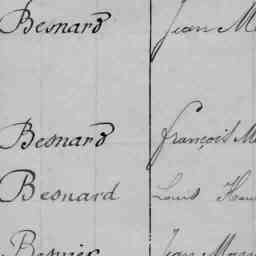 Besnard Jean
Besnard François
Besnard Louis
Besnier Jean